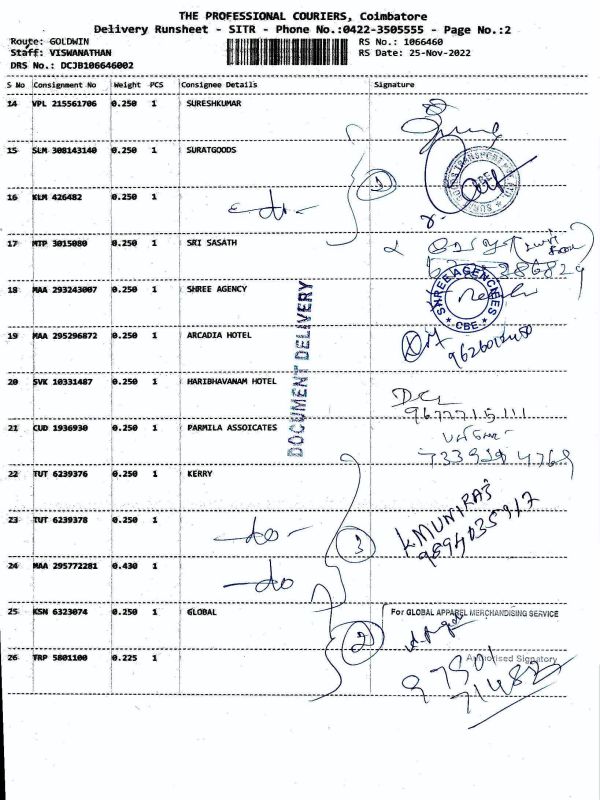 THE PROFESSIONAL COURIERS, Coimbatore
Delivery Runsheet - SITR - Phone No.:0422-3505555 - Page No.:2
Route: GOLDWIN
RS No.: 1066460
Staff: VISWANATHAN
RS Date: 25-Nov-2022
DRS No.: DCJB106646002
S No Consignment No Weight PCS Consignee Details Signature
14 VPL 215561706 0.250 1 SURESHKUMAR
15 SLM 308143140 0.250 1 SURATGOODS
16 KLM 426482 0.250 1 -do-
1
17 MTP 3015080 0.250 1 SRI SASATH
286829
18 MAA 293243007 0.250 1 SHREE AGENCY
SHREE AGENCIES
CBE
DOCUMENT DELIVERY
19 MAA 295296872 0.250 1 ARCADIA HOTEL
20 SVK 10331487 0.250 1 HARIBHAVANAM HOTEL
9677715111
21 CUD 1936930 0.250 1 PARMILA ASSOICATES
22 TUT 6239376 0.250 1 KERRY
23 TUT 6239378 0.250 1 -do-
3
K.MUNIRAJ
9894035917
24 MAA 295772281 0.430 1 -do
25 KSN 6323074 0.250 1 GLOBAL
For GLOBAL APPAREL MERCHANDISING SERVICE
2
26 TRP 5801100 0.225 1
Authorised Signatory
97901
71482